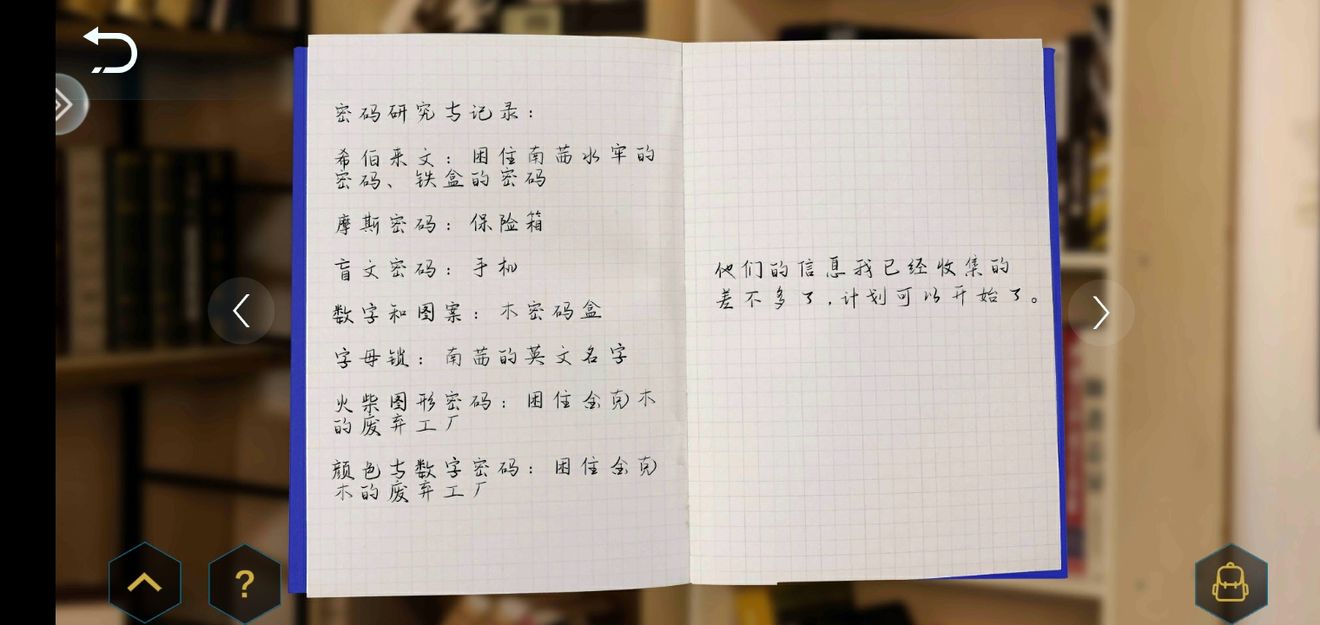 密码研究与记录：
希伯来文：困住南茜水牢的
密码、铁盒的密码
摩斯密码：保险箱
盲文密码：手机
数字和图案：木密码盒
字母锁：南茜的英文名字
火柴图形密码：困住金克木
的废弃工厂
颜色与数字密码：困住金克
木的废弃工厂
他们的信息我已经收集的
差不多了，计划可以开始了。
?